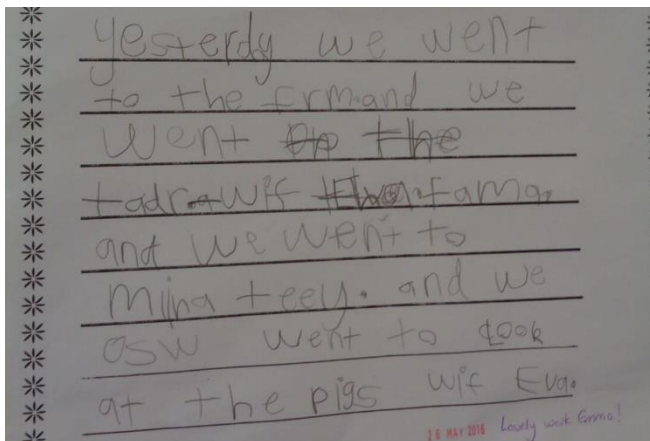 yesterdy we went
to the frm.and we
went on the
tadr wif the fama.
and we went to
mijna teey. and we
osw went to Look
at the pigs wif Eva.
26 MAY 2016 Lovely work Emma!